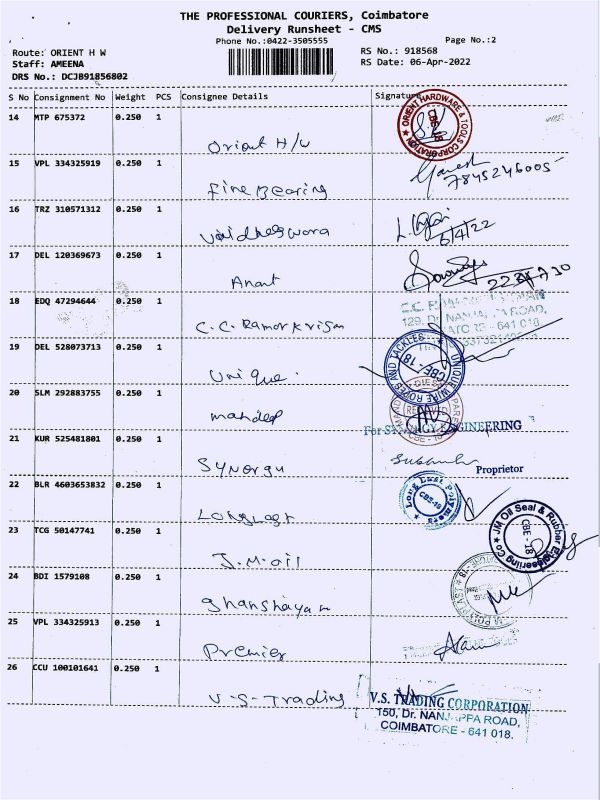 THE PROFESSIONAL COURIERS, Coimbatore
Delivery Runsheet - CMS
Phone No.:0422-3505555 Page No.:2
Route: ORIENT H W RS No.: 918568
Staff: AMEENA RS Date: 06-Apr-2022
DRS No.: DCJB91856802
S No Consignment No Weight PCS Consignee Details Signature
14 MTP 675372 0.250 1
Orient H/W
ORIENT HARDWARE & TOOLS CORPORATION
CBE-18
15 VPL 334325919 0.250 1
Fine Bearing
Ganesh
7845246005
16 TRZ 310571312 0.250 1
Vaidheeswara
6/4/22
17 DEL 120369673 0.250 1
Anant
18 EDQ 47294644 0.250 1
C.C. Ramorkrisan
129, Dr. NANJAPPA ROAD,
641 018.
19 DEL 528073713 0.250 1
Unique.
UNIQUE WIRE ROPES AND TACKLES
CBE-18
20 SLM 292883755 0.250 1
mandeep
21 KUR 525481801 0.250 1
For SYNERGY ENGINEERING
Synorgy
Proprietor
22 BLR 4603653832 0.250 1
Longlast
Long Last Polymers
CBE-18
23 TCG 50147741 0.250 1
J.M.oil
JM Oil Seal & Rubber Engineering Co
CBE-18
24 BDI 1579108 0.250 1
Ghanshayam
25 VPL 334325913 0.250 1
Premier
26 CCU 100101641 0.250 1
V.S-Trading
V.S. TRADING CORPORATION
150, Dr. NANJAPPA ROAD,
COIMBATORE - 641 018.